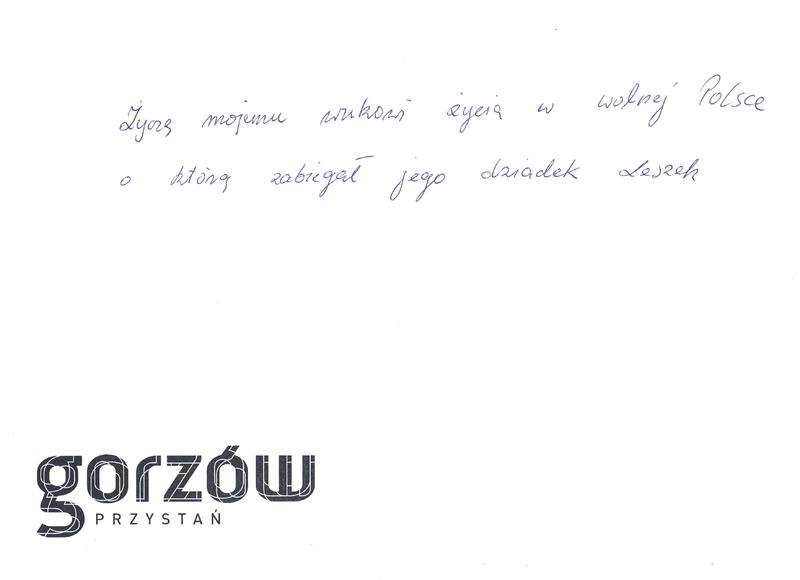 Życzę mojemu wnukowi życia w wolnej Polsce
o którą zabiegał jego dziadek Leszek
gorzów
PRZYSTAŃ